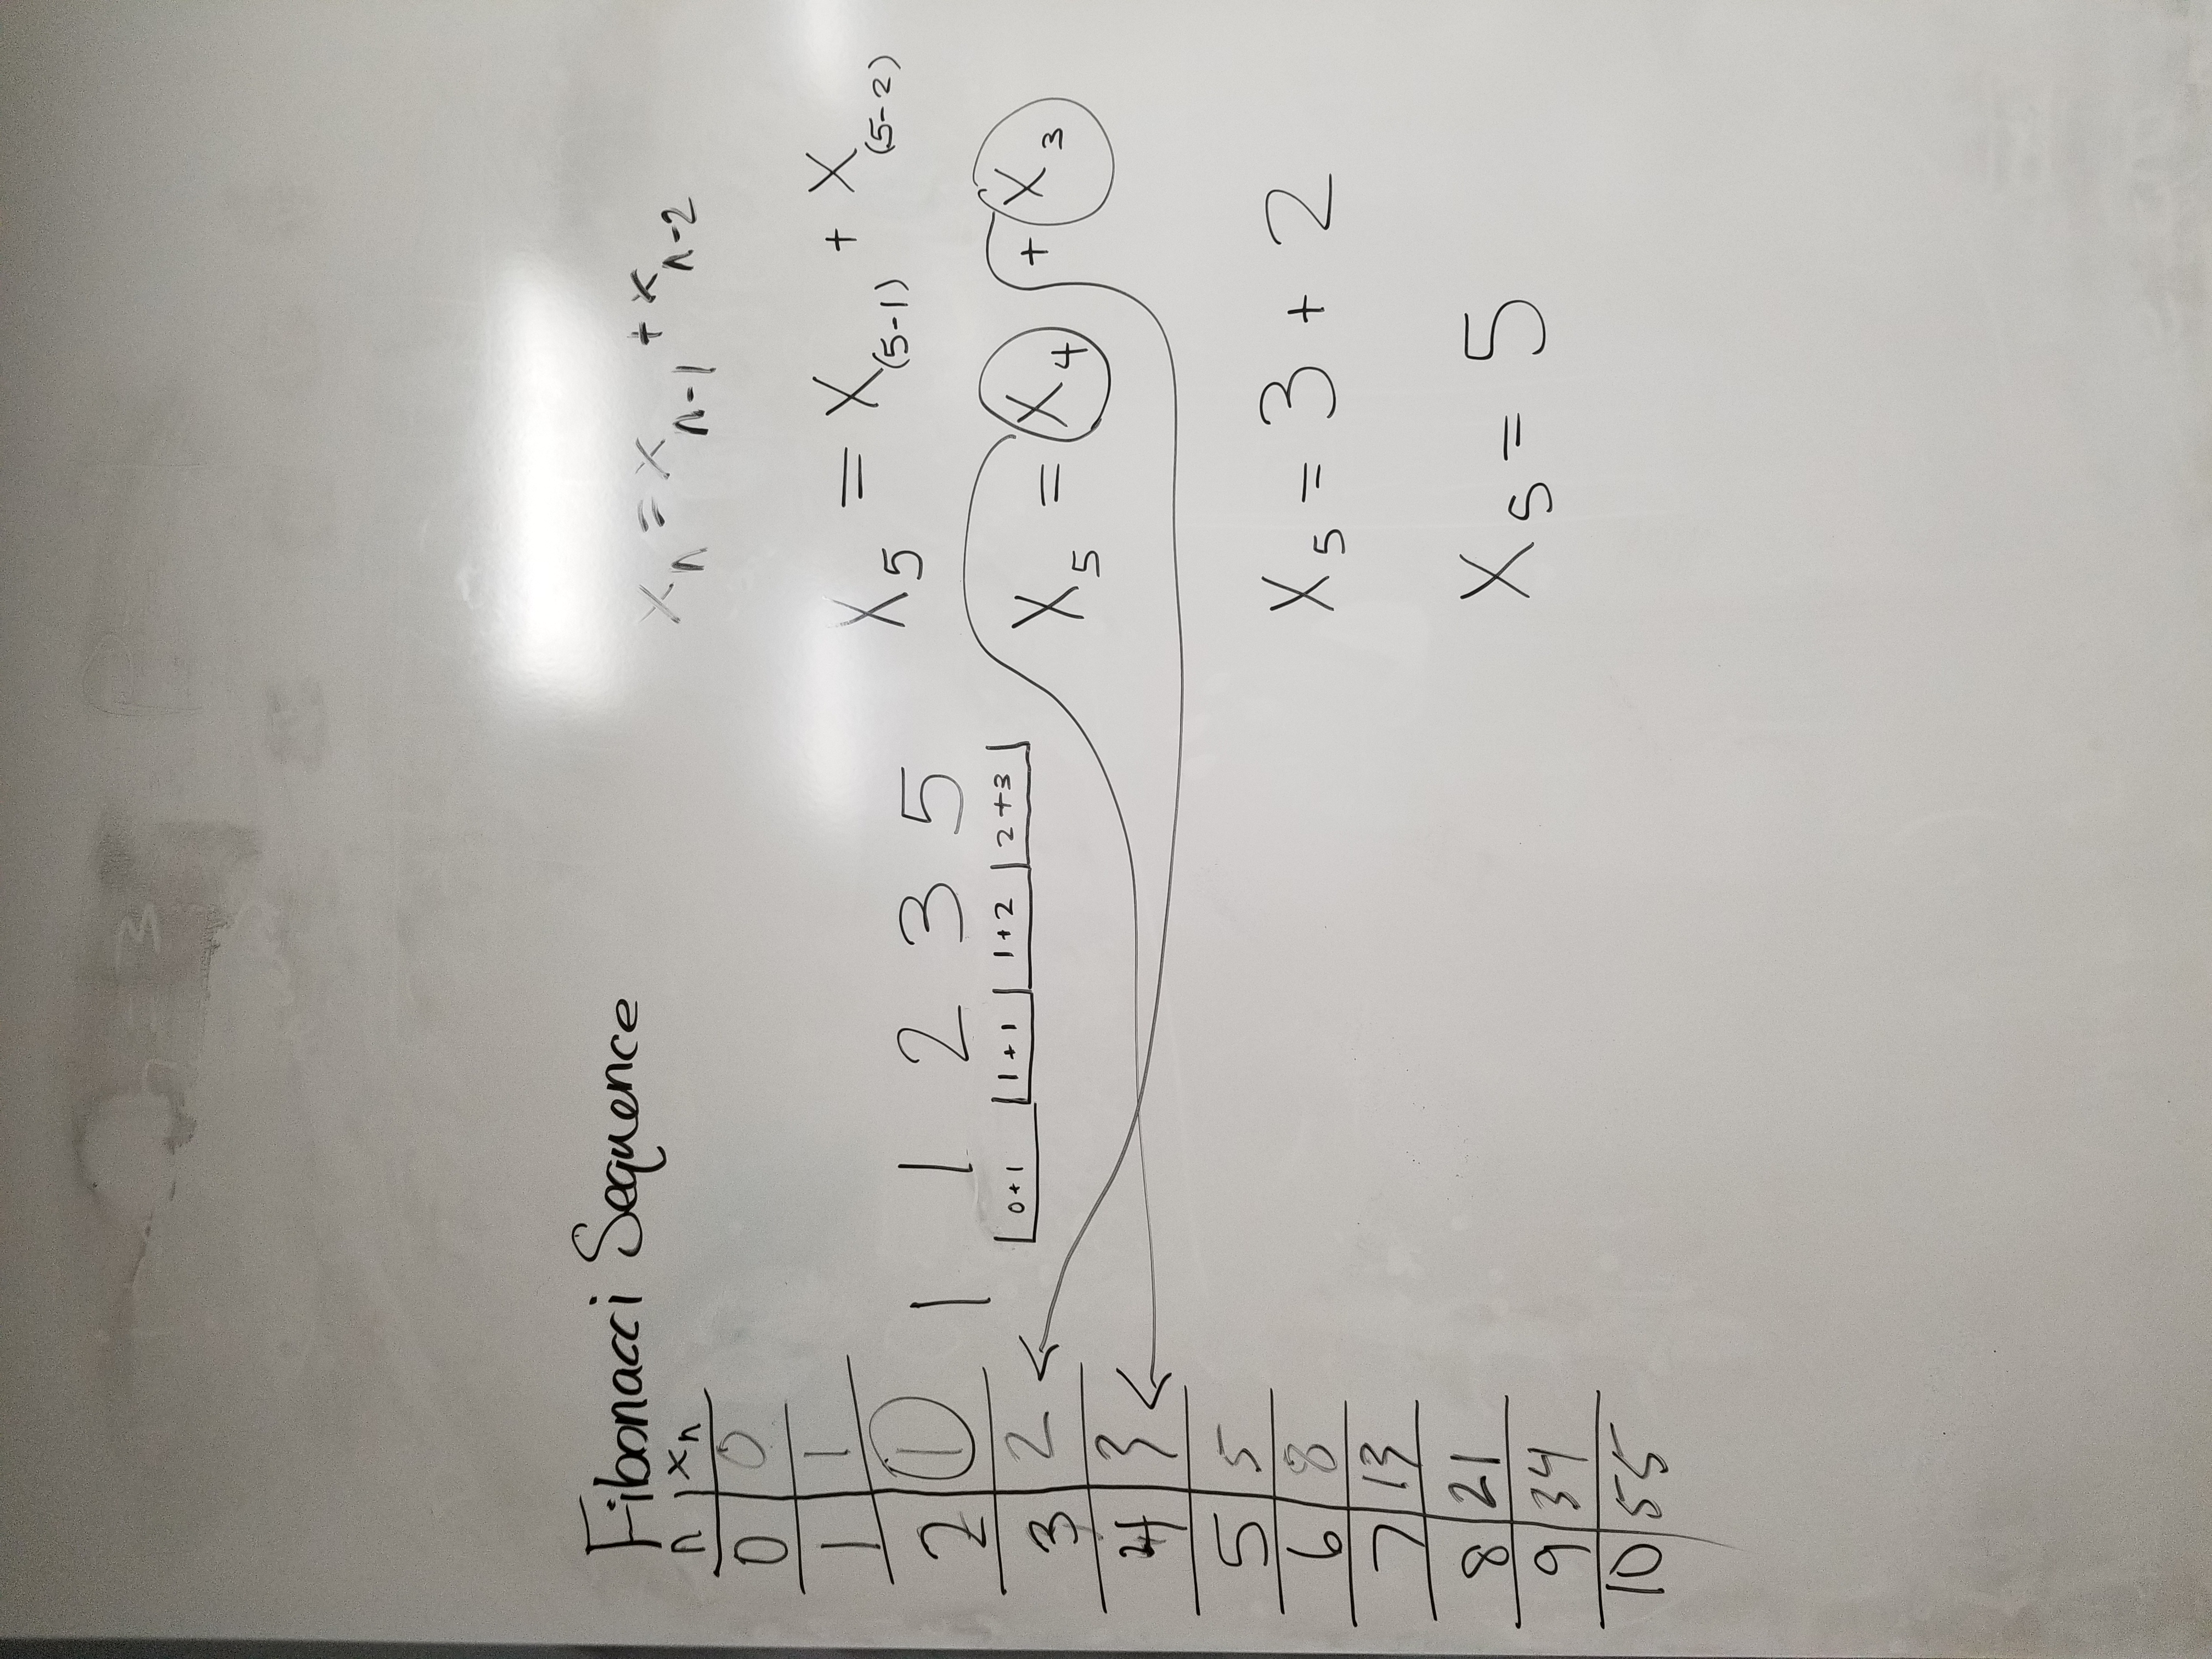 Fibonacci Sequence
n xn
0 0
1 1
2 1
3 2
4 3
5 5
6 8
7 13
8 21
9 34
10 55
1 1 2 3 5
0+1 1+1 1+2 2+3
xn = xn-1 + xn-2
X5 = X(5-1) + X(5-2)
X5 = X4 + X3
X5 = 3 + 2
X5 = 5